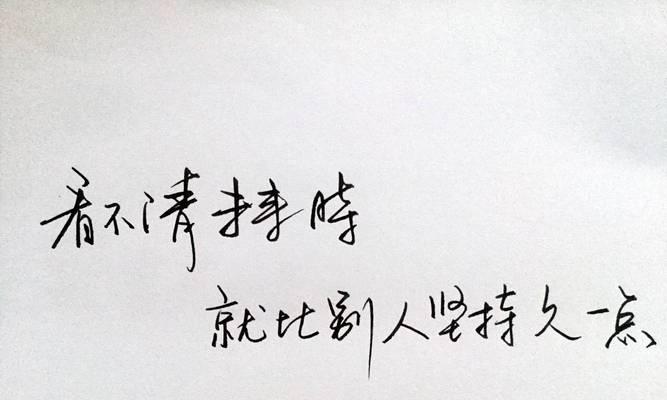 看不清未来时
就比别人坚持久一点